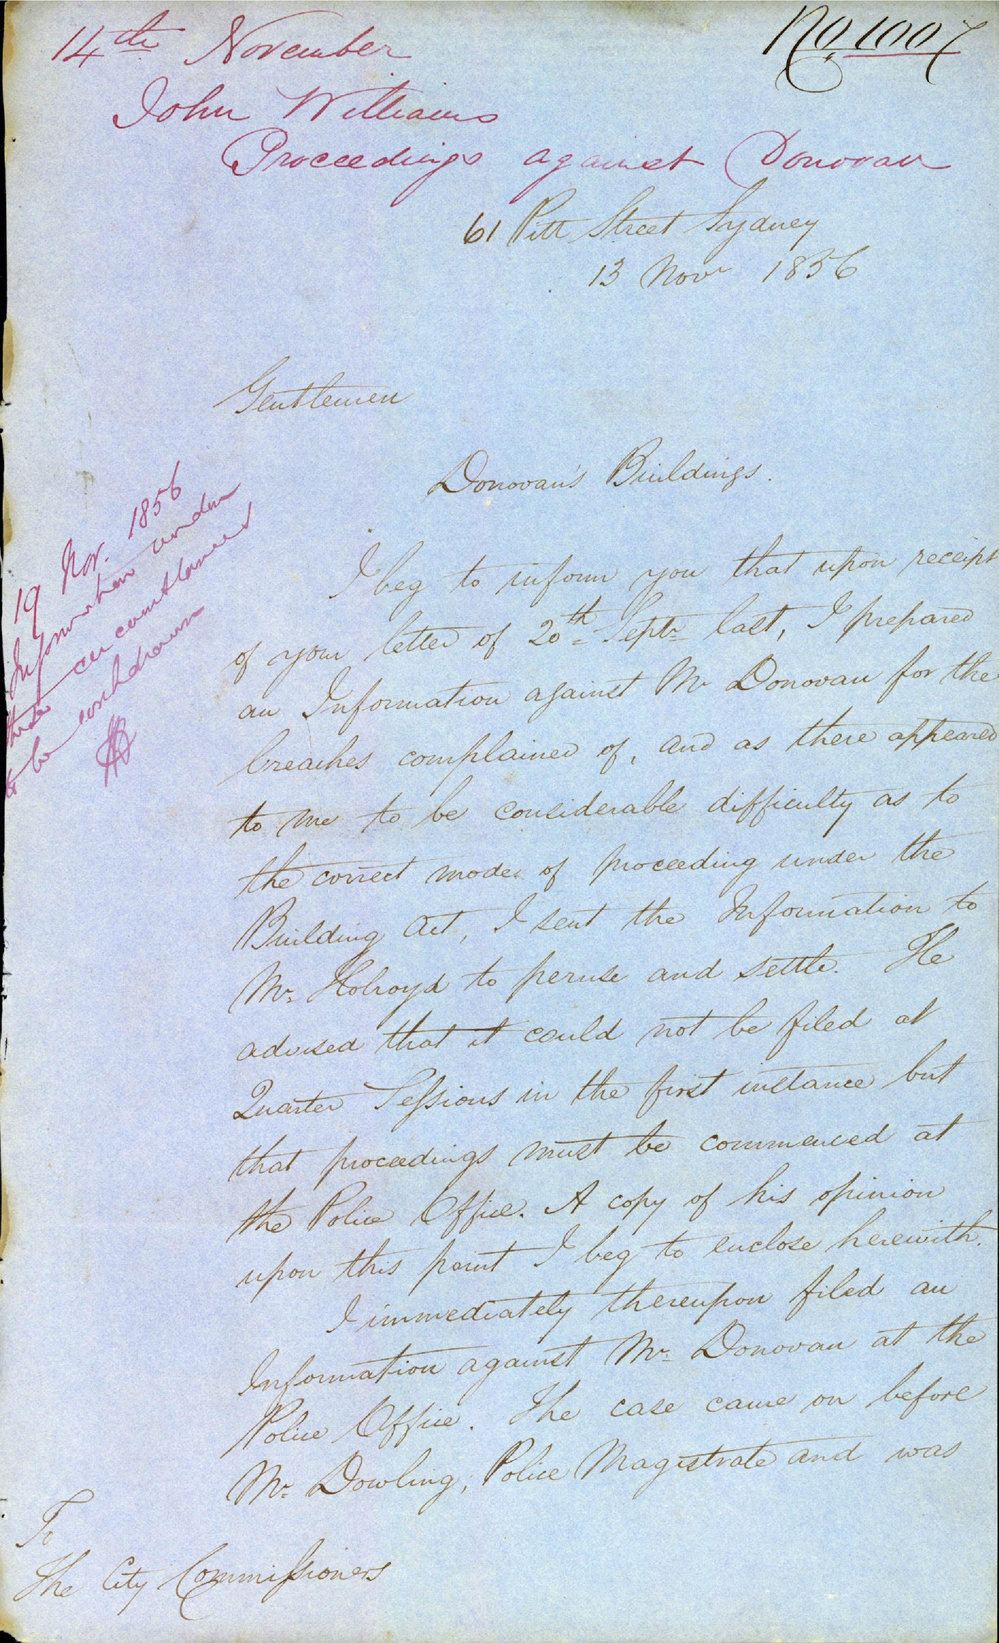 No. 1007
14th November
John Williams
Proceedings against Donovan
61 Pitt Street Sydney
13 Novr 1856
Gentlemen
Donovan's Buildings.
19 Nov. 1856
Information under
these circumstances
to be withdrawn
I beg to inform you that upon receipt
of your letter of 20th Septr last, I prepared
an Information against Mr Donovan for the
breaches complained of, and as there appeared
to me to be considerable difficulty as to
the correct mode of proceeding under the
Building Act, I sent the Information to
Mr. Holroyd to peruse and settle. He
advised that it could not be filed at
Quarter Sessions in the first instance but
that proceedings must be commenced at
the Police Office. A copy of his opinion
upon this point I beg to enclose herewith.
I immediately thereupon filed an
Information against Mr. Donovan at the
Police Office. The case came on before
Mr. Dowling, Police Magistrate and was
To
The City Commissioners